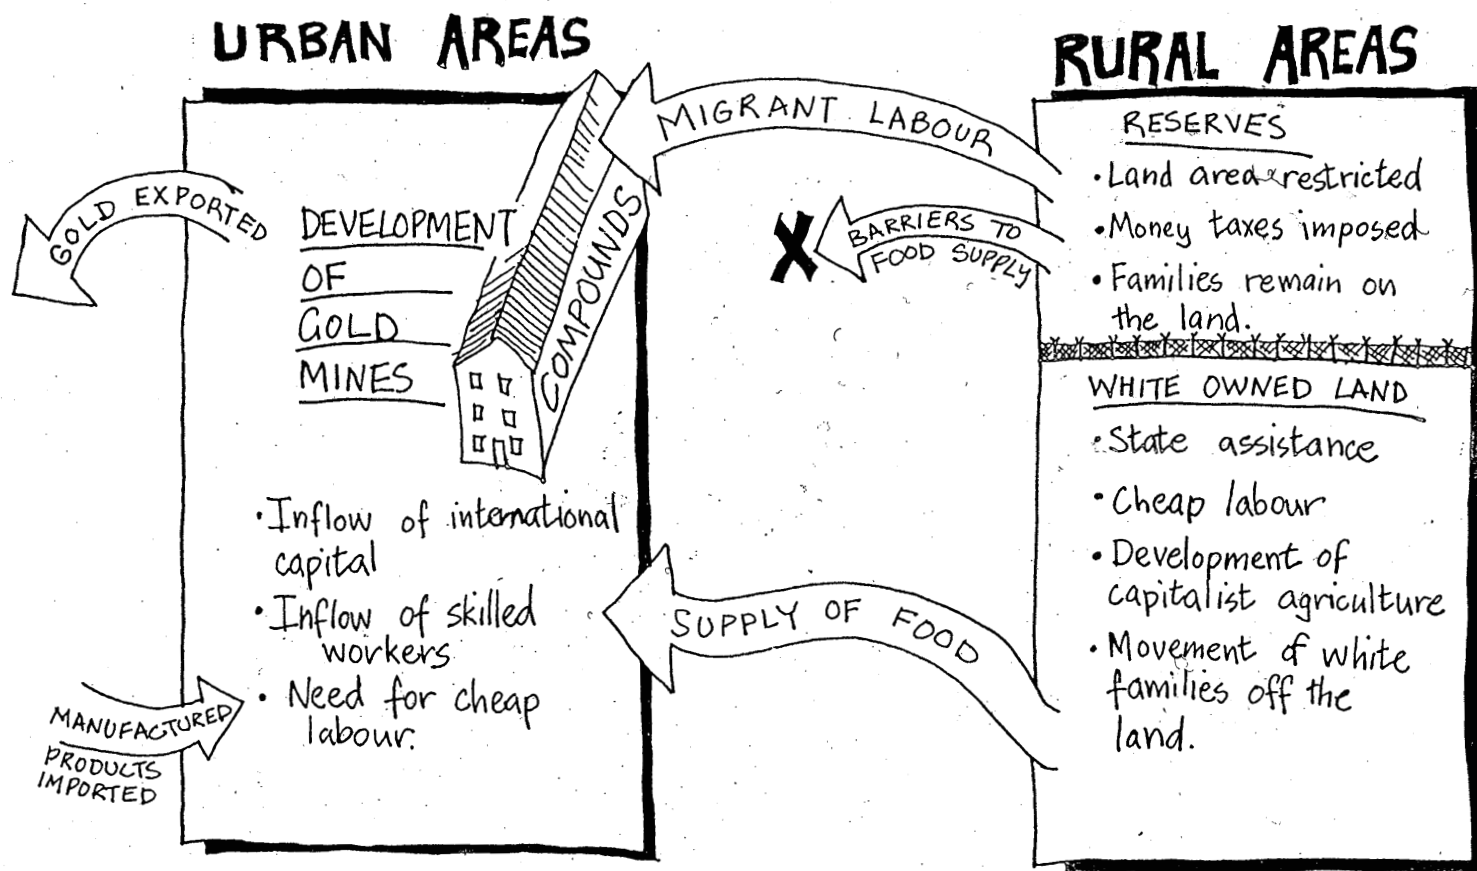 URBAN AREAS
RURAL AREAS
GOLD EXPORTED
DEVELOPMENT
OF
GOLD
MINES
COMPOUNDS
• Inflow of international
capital
• Inflow of skilled
workers
• Need for cheap
labour.
MANUFACTURED
PRODUCTS
IMPORTED
MIGRANT LABOUR
X
BARRIERS TO
FOOD SUPPLY
SUPPLY OF FOOD
RESERVES
• Land area restricted
• Money taxes imposed
• Families remain on
the land.
WHITE OWNED LAND
• State assistance
• Cheap labour
• Development of
capitalist agriculture
• Movement of white
families off the
land.